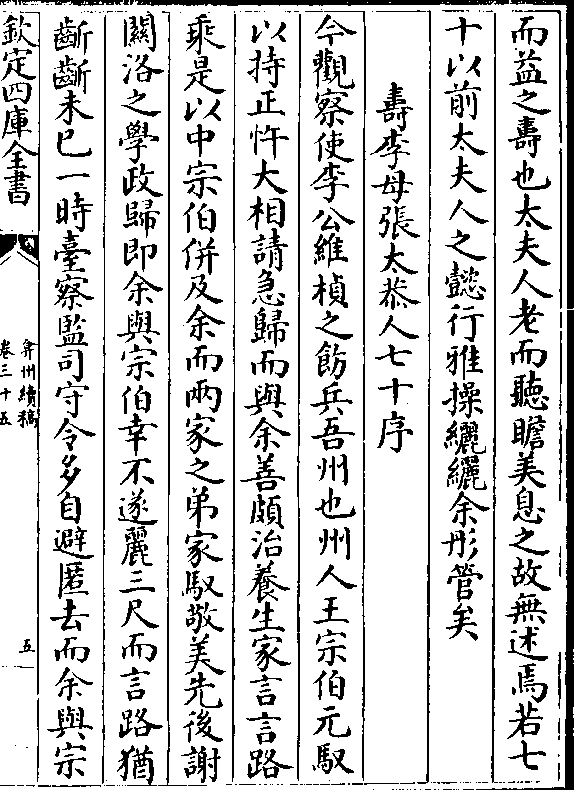 而益之壽也太夫人老而聽瞻美息之故無述焉若七
十以前太夫人之懿行雅操纚纚余彤管矣
壽李母張太恭人七十序
今觀察使李公維楨之飭兵吾州也州人王宗伯元馭
以持正忤大相請急歸而與余善頗治養生家言言路
乘是以中宗伯併及余而兩家之弟家馭敬美先後謝
關洛之學政歸即余與宗伯幸不遂麗三尺而言路猶
齗齗未已一時臺察監司守令多自避匿去而余與宗
欽定四庫全書
弇州續稿
卷三十五
五